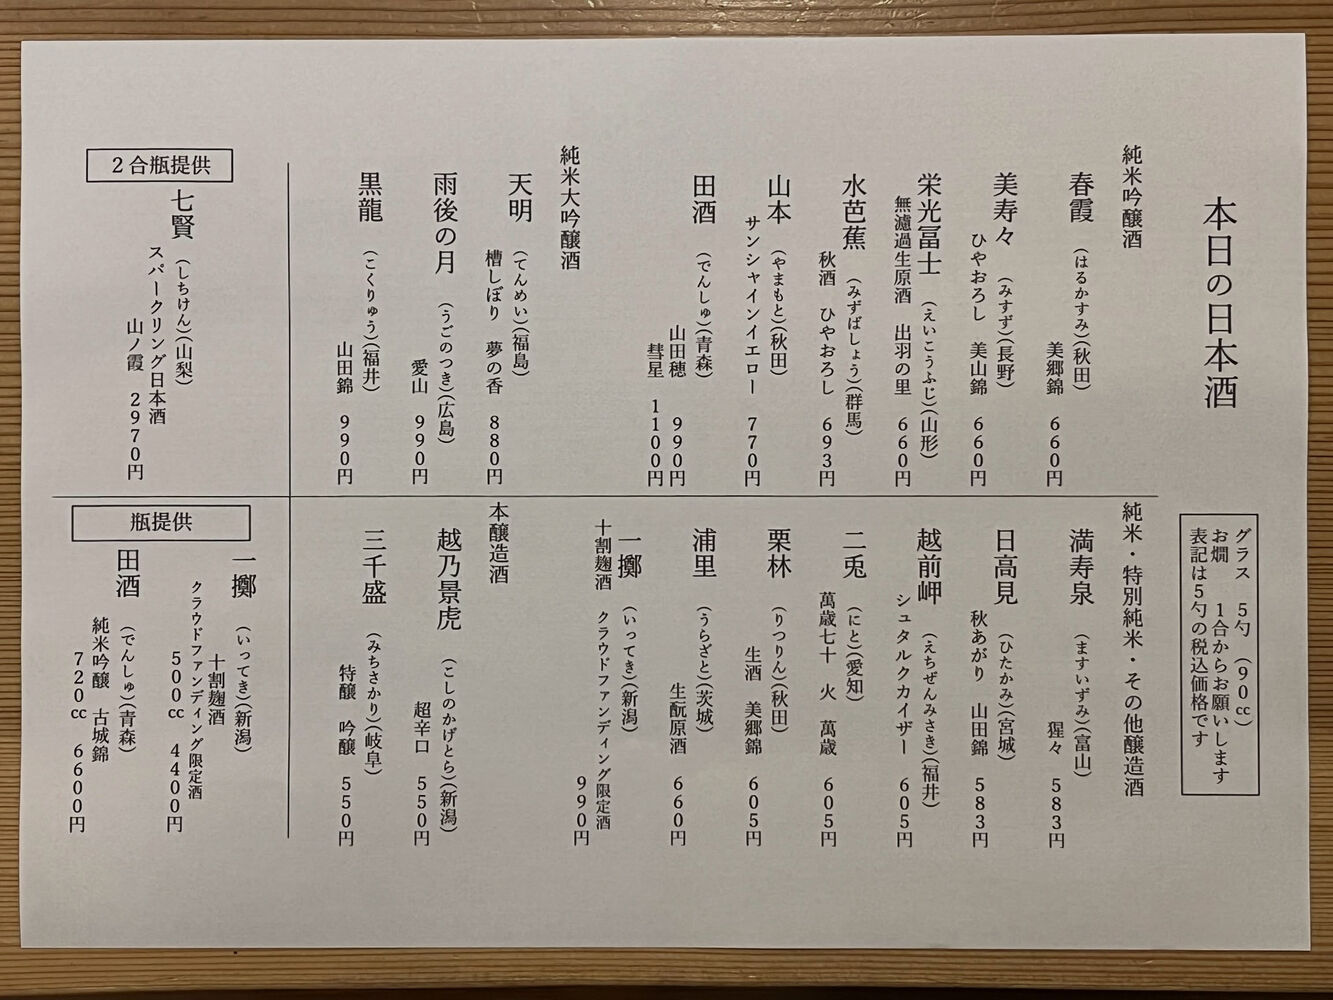 本日の日本酒
グラス 5勺 (90cc)
お燗 1合からお願いします
表記は5勺の税込価格です
純米吟醸酒
春霞 (はるかすみ)(秋田)
美郷錦 660円
美寿々 (みすず)(長野)
ひやおろし 美山錦 660円
栄光冨士 (えいこうふじ)(山形)
無濾過生原酒 出羽の里 660円
水芭蕉 (みずばしょう)(群馬)
秋酒 ひやおろし 693円
山本 (やまもと)(秋田)
サンシャインイエロー 770円
田酒 (でんしゅ)(青森)
山田穂 990円
彗星 1100円
純米大吟醸酒
天明 (てんめい)(福島)
槽しぼり 夢の香 880円
雨後の月 (うごのつき)(広島)
愛山 990円
黒龍 (こくりゅう)(福井)
山田錦 990円
純米・特別純米・その他醸造酒
満寿泉 (ますいずみ)(富山)
猩々 583円
日高見 (ひたかみ)(宮城)
秋あがり 山田錦 583円
越前岬 (えちぜんみさき)(福井)
シュタルクカイザー 605円
二兎 (にと)(愛知)
萬歳七十 火 萬歳 605円
栗林 (りつりん)(秋田)
生酒 美郷錦 605円
浦里 (うらざと)(茨城)
生酛原酒 660円
一擲 (いってき)(新潟)
十割麹酒 クラウドファンディング限定酒
990円
本醸造酒
越乃景虎 (こしのかげとら)(新潟)
超辛口 550円
三千盛 (みちさかり)(岐阜)
特醸 吟醸 550円
2合瓶提供
七賢 (しちけん)(山梨)
スパークリング日本酒
山ノ霞 2970円
瓶提供
一擲 (いってき)(新潟)
十割麹酒
クラウドファンディング限定酒
500cc 4400円
田酒 (でんしゅ)(青森)
純米吟醸 古城錦
720cc 6600円